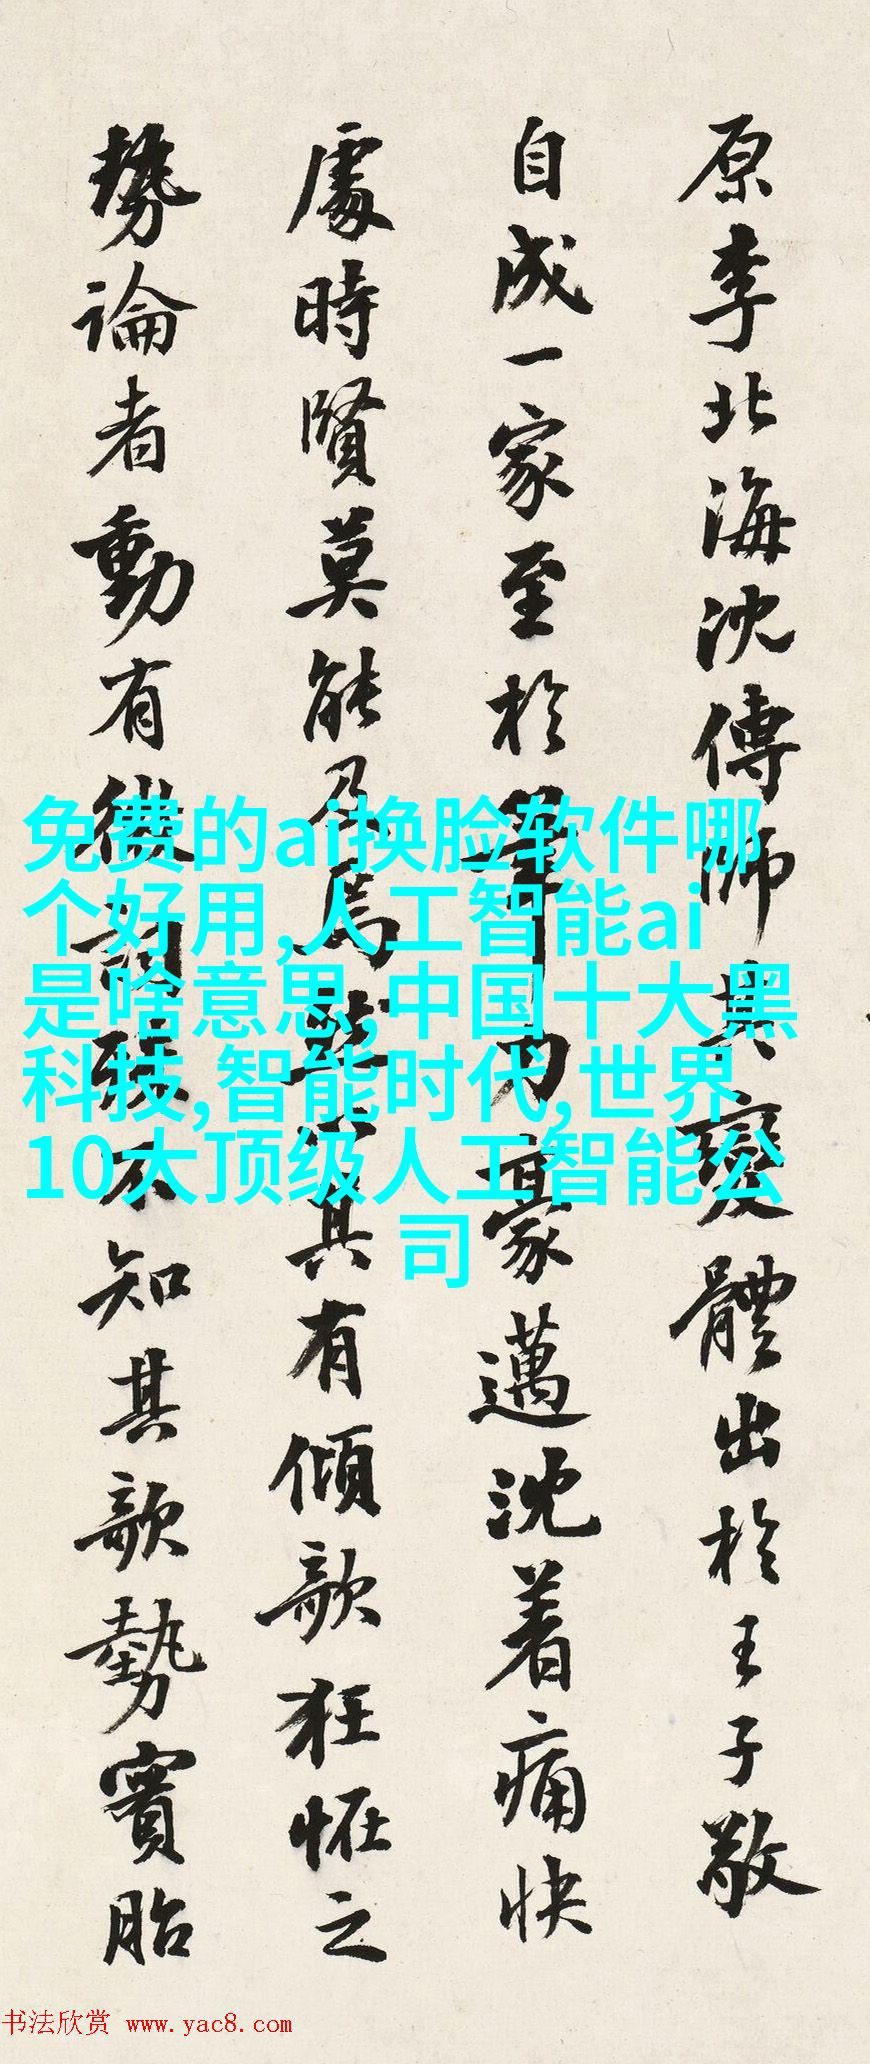 原李北海沈傳師其變體出於王子敬
自成一家至於筆力豪邁沈着痛快
處時賢莫能及焉然以其有傾欹狂怪之
勢論者動有微詞殊不知其欹勢實胎
免费的ai换脸软件哪
个好用,人工智能ai
是啥意思,中国十大黑
科技,智能时代,世界
10大顶级人工智能公
司
书法欣赏 www.yac8.com